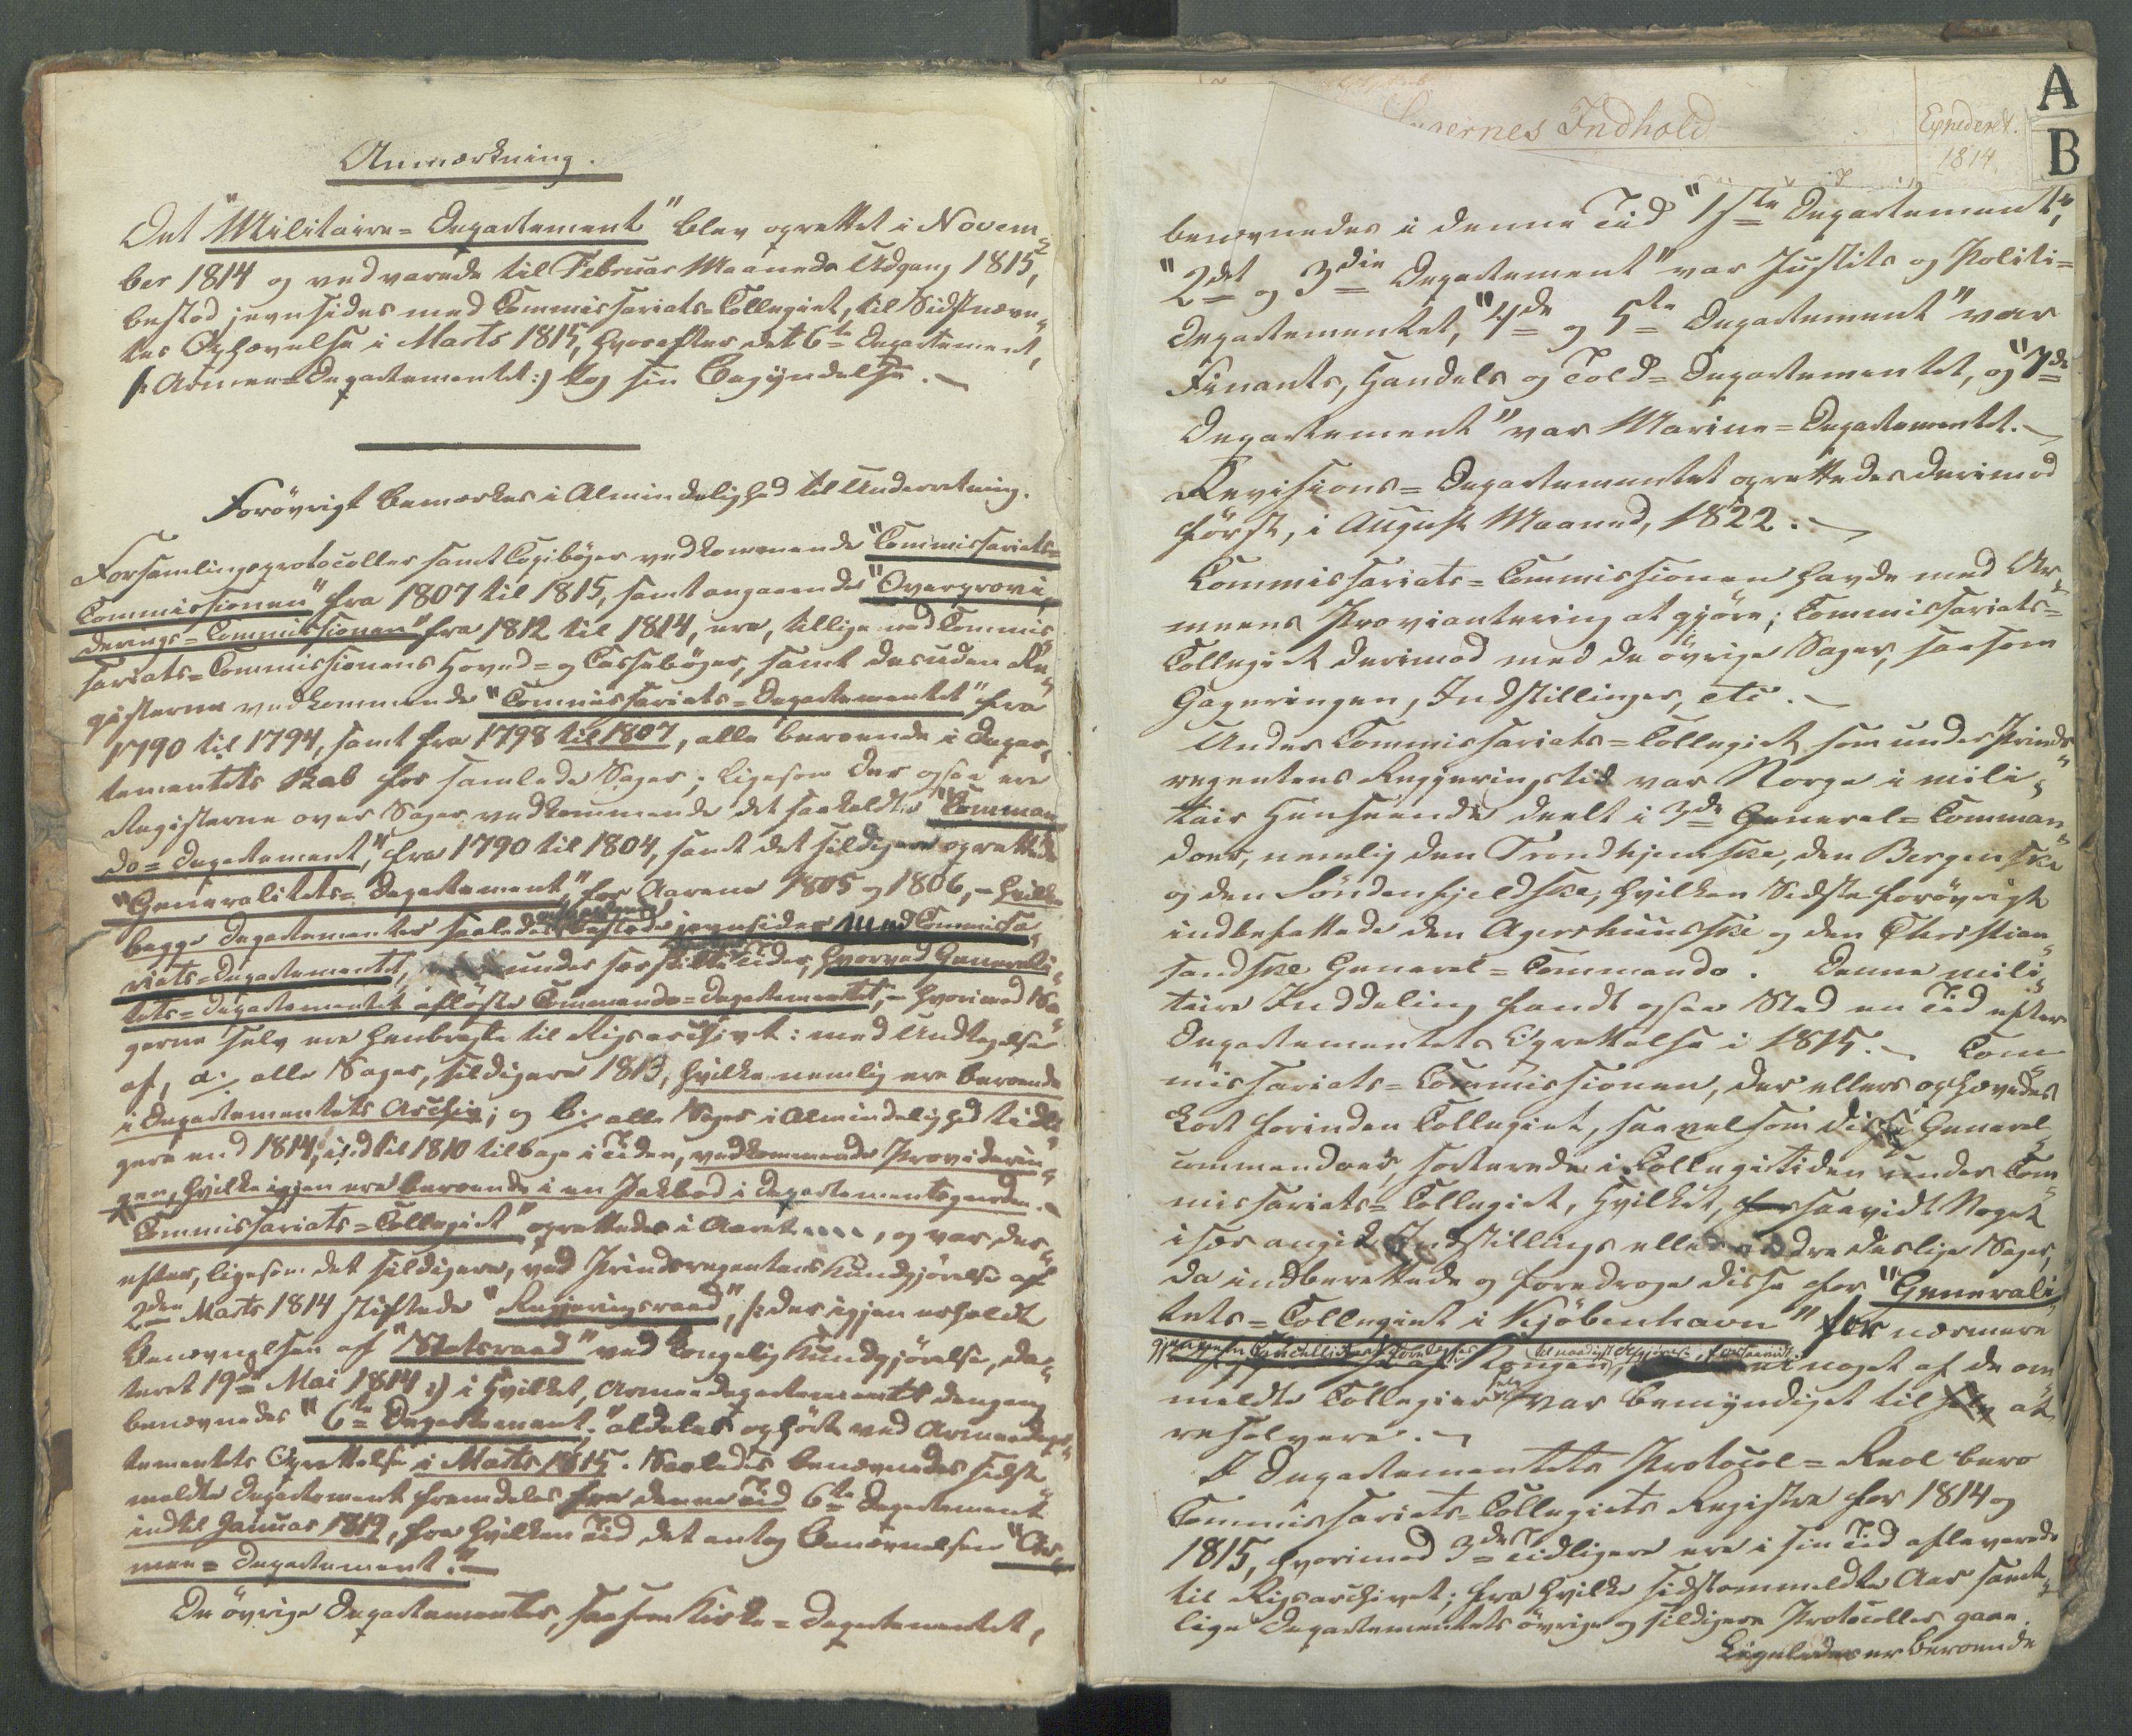 Anmærkning.
Det "Militaire=Departement" blev oprettet i Novem„
ber 1814 og vedvarede til Februar Maaneds Udgang 1815,
bestod jevnsides med Commissariats=Collegiet, til Sidstnævn„
tes Ophævelse i Marts 1815, hvorefter det 6te Departement,
/: Armee=Departementet :/ tog sin Begyndelse.
Forövrigt bemærkes i Almindelighed til Underretning.
Forsamlingsprotocoller samt Copibøger vedkommende "Commissariats=
Commissionen" fra 1807 til 1815, samt angaaende "Overprovi„
derings=Commissionen" fra 1812 til 1814, ere, tillige med Commis„
sariats=Commissionens Hoved= og Cassabøger, samt desuden Re„
gisterne vedkommende "Commissariats=Departementet" fra
1790 til 1794, samt fra 1798 til 1807, alle beroende i Depar„
tementets Skab for samlede Sager; ligesom der ogsaa ere
Registerne over Sager vedkommende det saakaldte "Comman„
do=Departement", fra 1790 til 1804, samt det sildigere oprettede
"Generalitets=Departement", for Aarene 1805 og 1806, - hvilke
begge Departementer saaledes bestode jevnsides med Commissa„
riats=Departementet, under forskjellige Tider, hvorved Generali„
tets=Departementet aflöste Commando=Departementet, - hvorimod Sa„
gerne selv ere henbragte til Rigsarchivet: med Undtagelse
af, a: alle Sager, sildigere 1813, hvilke nemlig ere beroende
i Departementets Archiv; og b: alle Sager i Almindelighed tidli„
gere end 1814, indtil 1810 tilbage i Tiden, vedkommende Provideringen,
hvilke igjen ere beroende i en Pakbod i Departementsgaarden.
"Commissariats=Collegiet" oprettedes i Aaret ...., og var der„
efter, ligesom det sildigere, ved Prindsregentens Kundgjörelse af
2den Marts 1814 stiftede "Regjeringsraad", /: der igjen erholdt
Benævnelsen af "Statsraad" ved Kongelig Kundgjörelse, da„
teret 19de Mai 1814 :/ i hvilket, Armeedepartementet dengang
benævnedes "6te Departement," aldeles ophört ved Armeedepar„
tementets Oprettelse i Marts 1815. Saaledes benævnedes sidst„
meldte Departement fremdeles fra denne Tid 6te Departement
indtil Januar 1819, fra hvilken Tid det antog Benævnelsen "Ar„
mee=Departement."
De övrige Departementer, saasom Kirke=Departementet,
A
B
Sagernes Indhold
Expederet.
1814
benævnedes i denne Tid "1ste Departement",
"2det og 3die Departement" var Justits og Politi=
Departementet, "4de og 5te Departement" var
Finants, Handels og Told=Departementet, og "7de
Departement" var Marine=Departementet.
Revisions=Departementet oprettedes derimod
först, i August Maaned, 1822.
Commissariats=Commissionen havde med Ar„
meens Proviantering at gjöre; Commissariats=
Collegiet derimod med de övrige Sager, saasom
Gageringen, Indstillinger, etc.
Under Commissariats=Collegiet som under Prinds„
regentens Regjeringstid var Norge i mili„
tair Henseende deelt i 3de General=Comman„
doer, nemlig den Trondhjemske, den Bergenske
og den Söndenfjeldske, hvilken Sidste forövrigt
indbefattede den Agershuusske og den Christian„
sandske General=Commando. Denne mili„
taire Inddeling fandt ogsaa Sted en Tid efter
Departementets Oprettelse i 1815. Com„
missariats=Commissionen, der ellers ophævedes
kort forinden Collegiet, saavelsom disse General„
commandoer, sorterede i Collegietiden under Com„
missariats=Collegiet, hvilket, forsaavidt Noget
især angik Indstillings eller andre deslige Sager,
da indberettede og foredroge disse for "Generali„
tets=Collegiet i Kjöbenhavn" for nærmere
gjennem Cancelliet Kongen, til naadigst Afgjörelse, forsaavidt ei noget af de om„
meldte Collegier selv var bemyndiget til at
resolvere.
I Departementets Protocol=Reol bero
Commissariats=Collegiets Registre for 1814 og
1815, hvorimod 3de Tidligere ere i sin Tid afleverede
til Rigsarchivet; fra hvilke sidstommeldte Aar samt„
lige Departementets övrige og sildigere Protocoller gaae.
Ligeledes er beroende